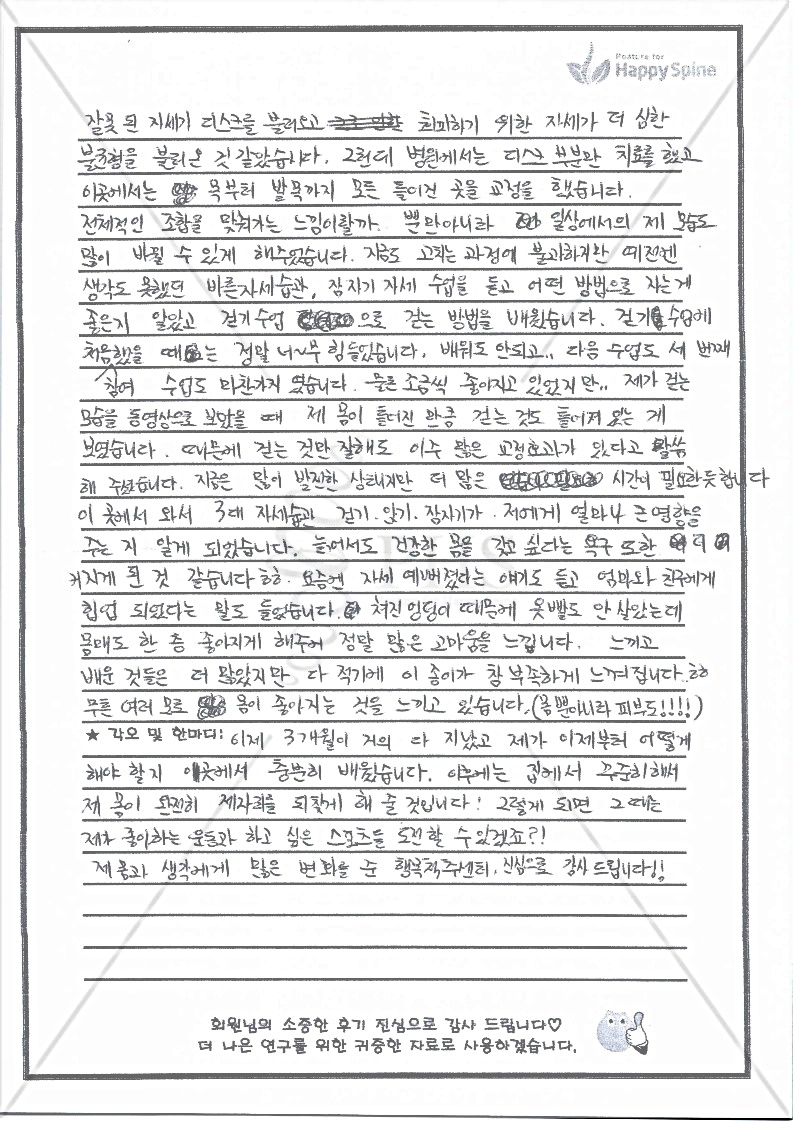 Posture for
HappySpine
잘못 된 자세가 디스크를 불러오고 회피하기 위한 자세가 더 심한
불균형을 불러온 것 같았습니다. 그런데 병원에서는 디스크 부분만 치료를 했고
이곳에서는 목부터 발목까지 모든 틀어진 곳을 교정을 했습니다.
전체적인 조합을 맞춰가는 느낌이랄까. 뿐만아니라 일상에서의 제 모습도
많이 바뀔 수 있게 해주었습니다. 지금도 고치는 과정에 불과하지만 예전엔
생각도 못했던 바른자세습관, 잠자기 자세 수업을 듣고 어떤 방법으로 자는게
좋은지 알았고 걷기수업으로 걷는 방법을 배웠습니다. 걷기수업에
처음했을 때는 정말 너~무 힘들었습니다. 배워도 안되고.. 다음 수업도 세 번째
참여 수업도 마찬가지 였습니다. 물론 조금씩 좋아지고 있었지만.. 제가 걷는
모습을 동영상으로 보았을 때 제 몸이 틀어진 만큼 걷는 것도 틀어져 있는 게
보였습니다. 때문에 걷는 것만 잘해도 아주 많은 교정효과가 있다고 말씀
해 주셨습니다. 지금은 많이 발전한 상태지만 더 많은 시간이 필요한듯합니다
이 곳에서 와서 3대 자세습관 걷기. 앉기. 잠자기가. 저에게 얼마나 큰 영향을
주는 지 알게 되었습니다. 늙어서도 건강한 몸을 갖고 싶다는 욕구 또한 더
커지게 된 것 같습니다 ㅎㅎ. 요즘엔 자세 예뻐졌다는 얘기도 듣고 엄마와 친구에게
힙업 되었다는 말도 들었습니다. 쳐진 엉덩이 때문에 옷빨도 안 살았는데
몸매도 한 층 좋아지게 해주어 정말 많은 고마움을 느낍니다. 느끼고
배운 것들은 더 많았지만 다 적기에 이 종이가 참 부족하게 느껴집니다..ㅎㅎ
무튼 여러 모로 몸이 좋아지는 것을 느끼고 있습니다.(몸뿐아니라 피부도!!!!)
★ 각오 및 한마디: 이제 3개월이 거의 다 지났고 제가 이제부터 어떻게
해야 할지 이곳에서 충분히 배웠습니다. 이후에는 집에서 꾸준히해서
제 몸이 완전히 제자리를 되찾게 해 줄 것입니다! 그렇게 되면 그때는
제가 좋아하는 운동과 하고 싶은 스포츠를 도전할 수 있겠죠?!
제 몸과 생각에게 많은 변화를 준 행복척추센터, 진심으로 감사 드립니다!!
회원님의 소중한 후기 진심으로 감사 드립니다♡
더 나은 연구를 위한 귀중한 자료로 사용하겠습니다.